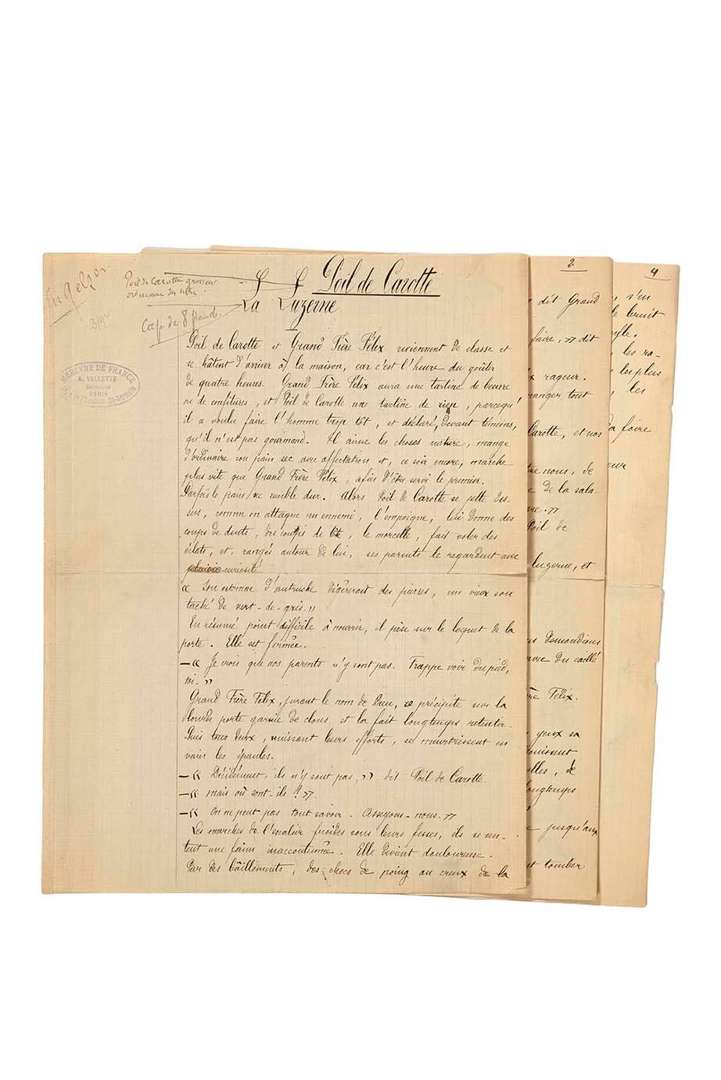 Poil de Carotte
La Luzerne
Poil de Carotte
Cap. de 8
MERCVRE DE FRANCE
A. VALLETTE
PARIS
Poil de Carotte et Grand Frère Félix reviennent de classe et
se hâtent d'arriver à la maison, car c'est l'heure du goûter
de quatre heures. Grand Frère Félix aura une tartine de beurre
ou de confitures, et Poil de Carotte une tartine de rien, parcequ'
il a voulu faire l'homme trop tôt, et déclaré, devant témoins,
qu'il n'est pas gourmand. Il aime les choses nature, mange
d'ordinaire son pain sec avec affectation et, ce soir encore, marche
plus vite que Grand Frère Félix, afin d'être servi le premier.
Parfois le pain sec semble dur. Alors Poil de Carotte se jette des-
sus, comme on attaque un ennemi, l'empoigne, lui donne des
coups de dents, des coups de tête, le morcelle, fait voler des
éclats, et, rangés autour de lui, ses parents le regardent avec
curiosité
« Son estomac d'autruche digèrerait des pierres, un vieux sou
taché de vert-de-gris. »
En résumé point difficile à nourrir, il pèse sur le loquet de la
porte. Elle est fermée.
— « Je crois que nos parents n'y sont pas. Frappe voir du pied,
toi. »
Grand Frère Félix, jurant le nom de Dieu, se précipite sur la
lourde porte garnie de clous et la fait longtemps retentir.
Puis tous deux, unissant leurs efforts, se meurtrissent en
vain les épaules.
— « Décidément, ils n'y sont pas, » dit Poil de Carotte
— « mais où sont-ils ? »
— « On ne peut pas tout savoir. Asseyons-nous. »
Les marches de l'escalier froides sous leurs fesses, ils se sen-
tent une faim inaccoutumée. Elle devient douloureuse.
Par des bâillements, des chocs de poing au creux de la
3
dit Grand
faire, » dit
rageur.
manger tout
Carotte, et nos
nous, de
de la sala
Poil de
luzerne, et
demandions
du caillé
Félix.
yeux sa
longtemps
jusqu'aux
tomber
4
s'en
le bruit
les ra-
les plus
les
la foire